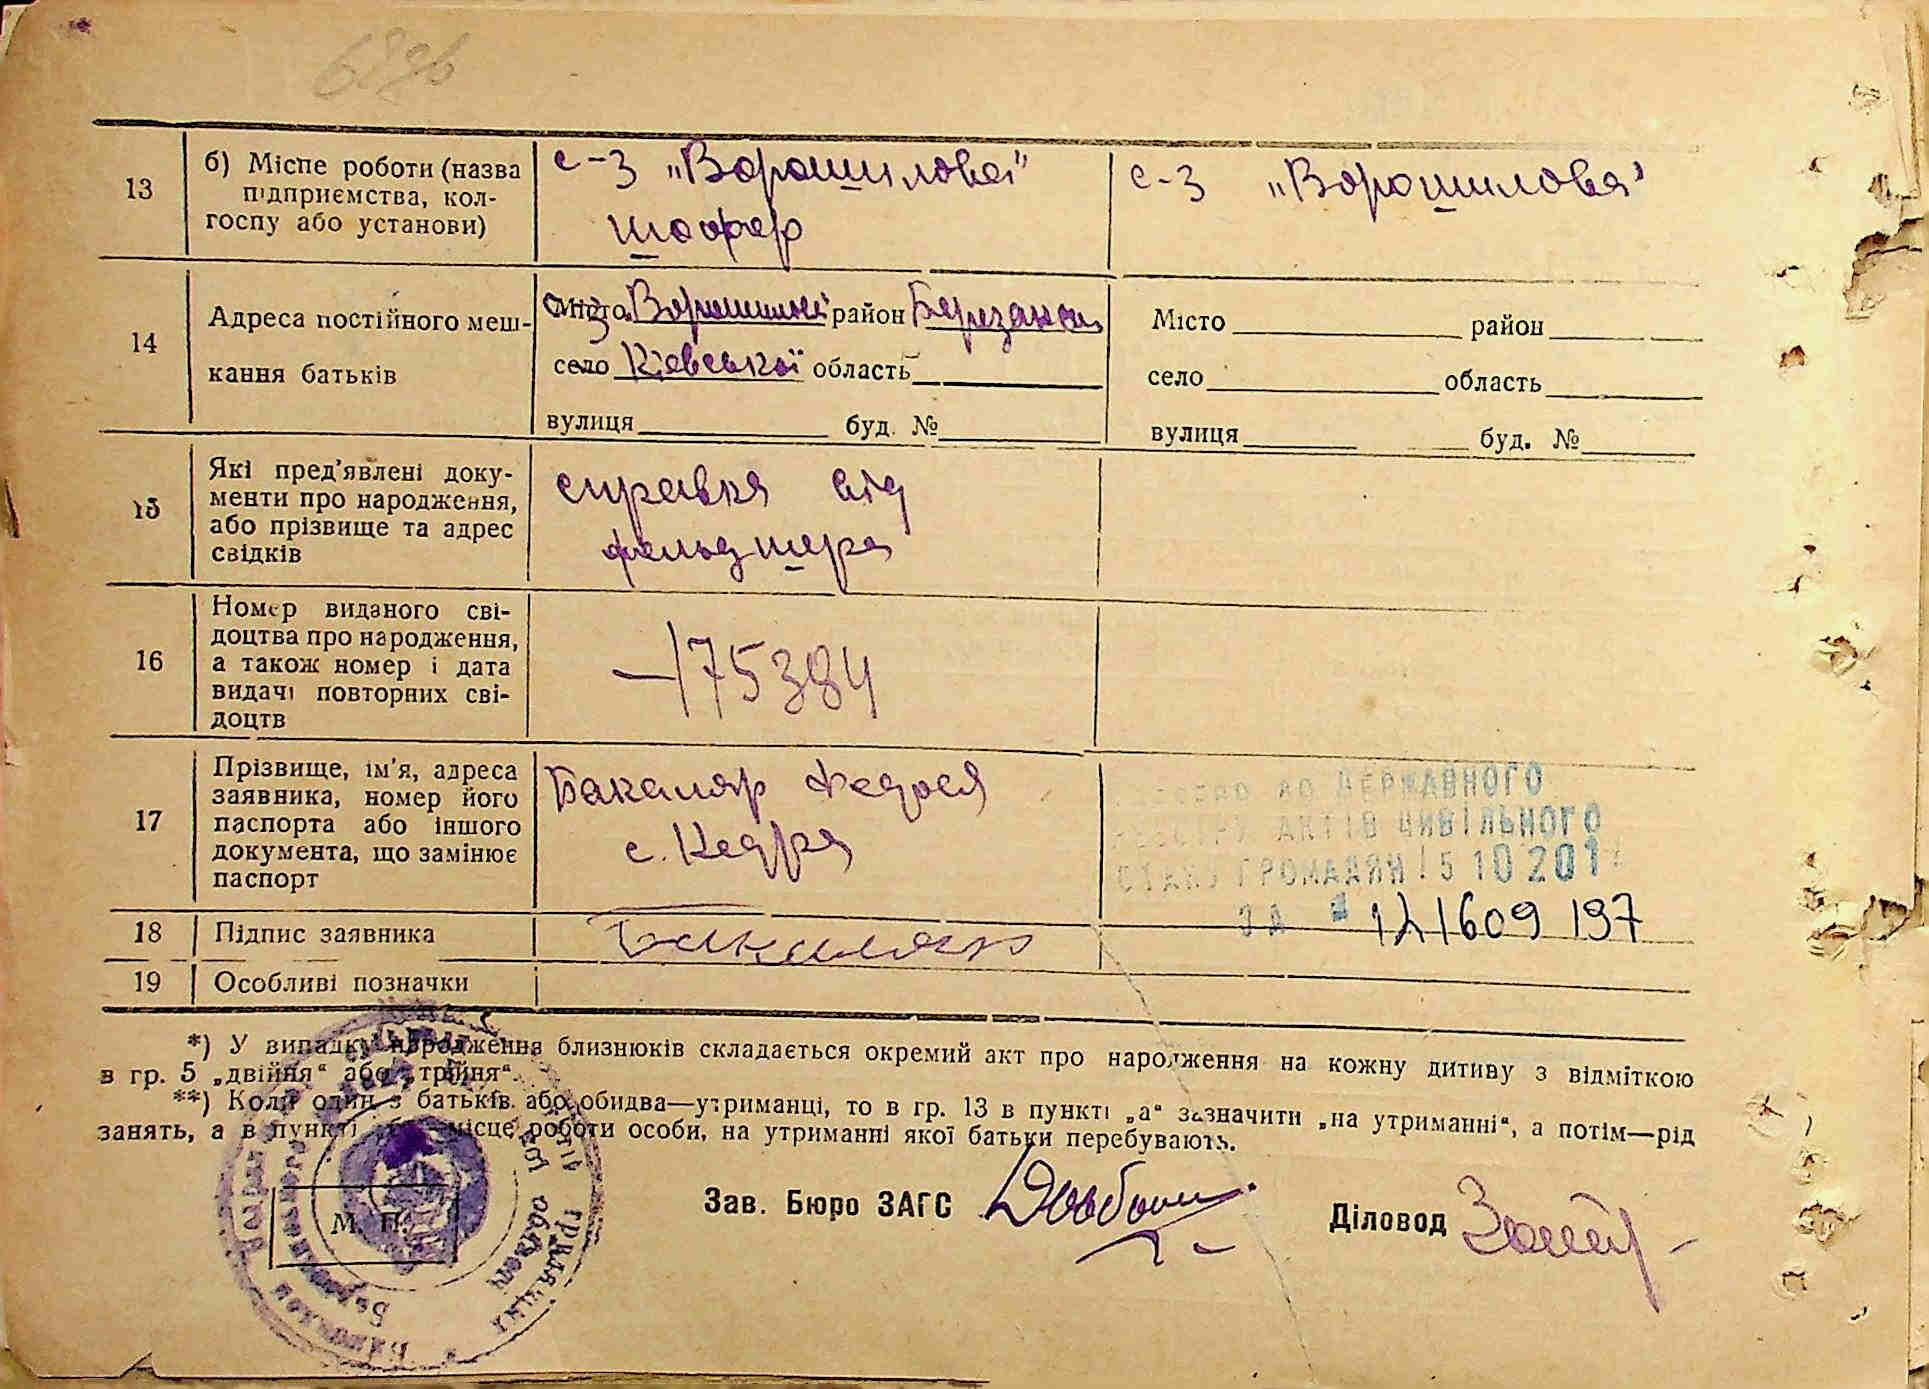 13
б) Місце роботи (назва
підприємства, кол-
госпу або установи)
с-з „Ворошилова"
шофер
с-з „Ворошилова"
14
Адреса постійного меш-
кання батьків
Місто Ворошилова район Березанськ
село Кієвської область
вулиця буд. №
Місто район
село область
вулиця буд. №
15
Які пред'явлені доку-
менти про народження,
або прізвище та адрес
свідків
справка від
фельдшера
16
Номер виданого сві-
доцтва про народження,
а також номер і дата
видачі повторних сві-
доцтв
—175384
17
Прізвище, ім'я, адреса
заявника, номер його
паспорта або іншого
документа, що замінює
паспорт
Бакаляр Федося
с. Недра
ДО ДЕРЖАВНОГО
РЕЄСТРУ АКТІВ ЦИВІЛЬНОГО
СТАНУ ГРОМАДЯН 15 10 201
ЗА № 121609 197
18
Підпис заявника
Бакаляр
19
Особливі позначки
*) У випадку народження близнюків складається окремий акт про народження на кожну дитину з відміткою
в гр. 5 „двійня“ або „трійня“.
**) Коли один з батьків або обидва—утриманці, то в гр. 13 в пункті „а“ зазначити „на утриманні“, а потім—рід
занять, а в пункті місце роботи особи, на утриманні якої батьки перебувають.
Зав. Бюро ЗАГС
Діловод
М. П.